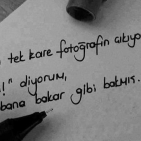 tek kare fotoğrafın çıkıyo
!" diyorum,
bana bakar gibi bakmış.